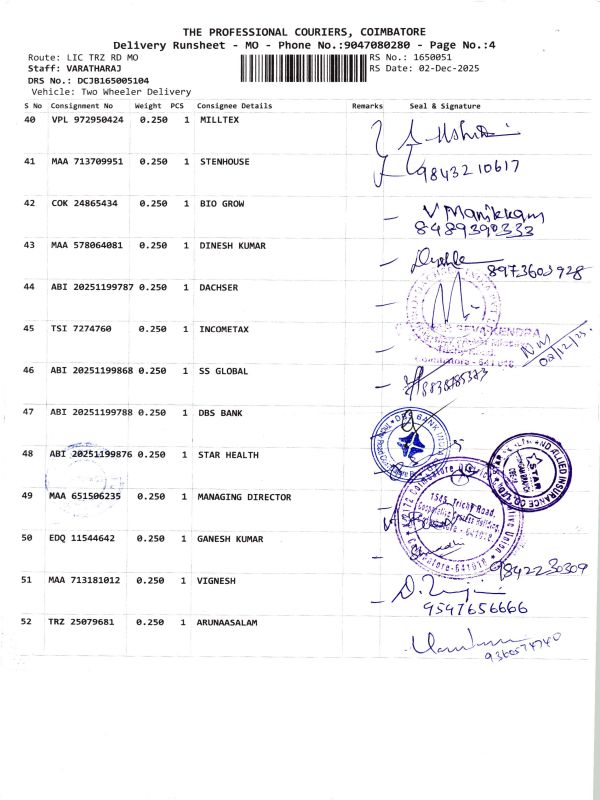 THE PROFESSIONAL COURIERS, COIMBATORE
Delivery Runsheet - MO - Phone No.:9047080280 - Page No.:4
Route: LIC TRZ RD MO
RS No.: 1650051
Staff: VARATHARAJ
RS Date: 02-Dec-2025
DRS No.: DCJB165005104
Vehicle: Two Wheeler Delivery
S No Consignment No Weight PCS Consignee Details Remarks Seal & Signature
40 VPL 972950424 0.250 1 MILLTEX
41 MAA 713709951 0.250 1 STENHOUSE
9843210617
42 COK 24865434 0.250 1 BIO GROW
V Manikkam
8489390333
43 MAA 578064081 0.250 1 DINESH KUMAR
8973603928
44 ABI 20251199787 0.250 1 DACHSER
45 TSI 7274760 0.250 1 INCOMETAX
SEVA KENDRA
Coimbatore - 641018
02/12/25
46 ABI 20251199868 0.250 1 SS GLOBAL
47 ABI 20251199788 0.250 1 DBS BANK
DBS BANK INDIA
48 ABI 20251199876 0.250 1 STAR HEALTH
STAR HEALTH AND ALLIED INSURANCE CO. LTD.
STAR
49 MAA 651506235 0.250 1 MANAGING DIRECTOR
1545, Trichy Road,
Coimbatore - 641018
50 EDQ 11544642 0.250 1 GANESH KUMAR
9842230309
51 MAA 713181012 0.250 1 VIGNESH
9547656666
52 TRZ 25079681 0.250 1 ARUNAASALAM
9360574740